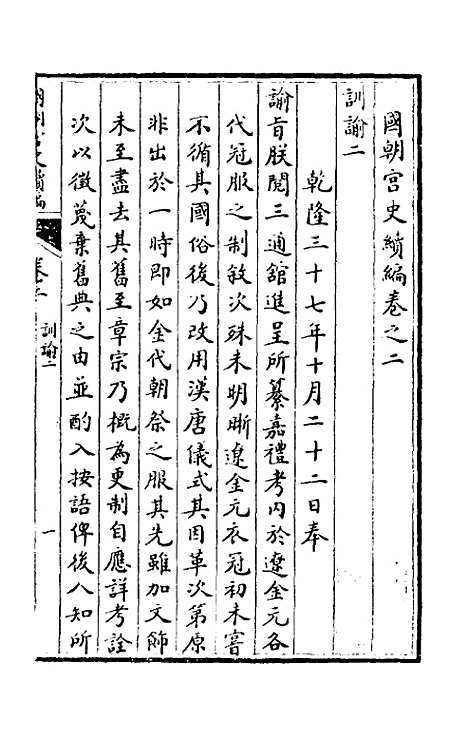 國朝宮史續編卷之二
訓諭二
乾隆三十七年十月二十二日奉
諭旨朕閱三通舘進呈所纂嘉禮考内於遼金元各
代冠服之制敘次殊未明晰遼金元衣冠初未嘗
不循其國俗後乃改用漢唐儀式其因革次第原
非出於一時即如金代朝祭之服其先雖加文飾
未至盡去其舊至章宗乃概為更制自應詳考詮
次以徵蔑棄舊典之由並酌入按語俾後人知所
訓諭二
一